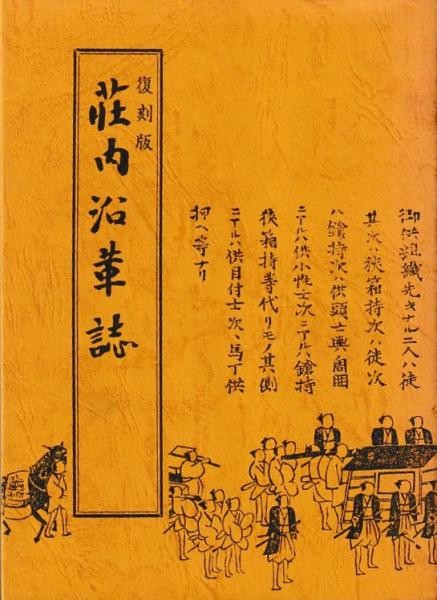 復刻版
莊内沿革誌
御供組織先キナル二人ハ徒
其次ハ挾箱持次ハ徒次
ハ鎗持次ハ供頭士輿周囲
ニアルハ供小性士次ニアルハ鎗持
挾箱持等代リモノ其側
ニアルハ供目付士次ハ馬丁供
押ヘ等ナリ